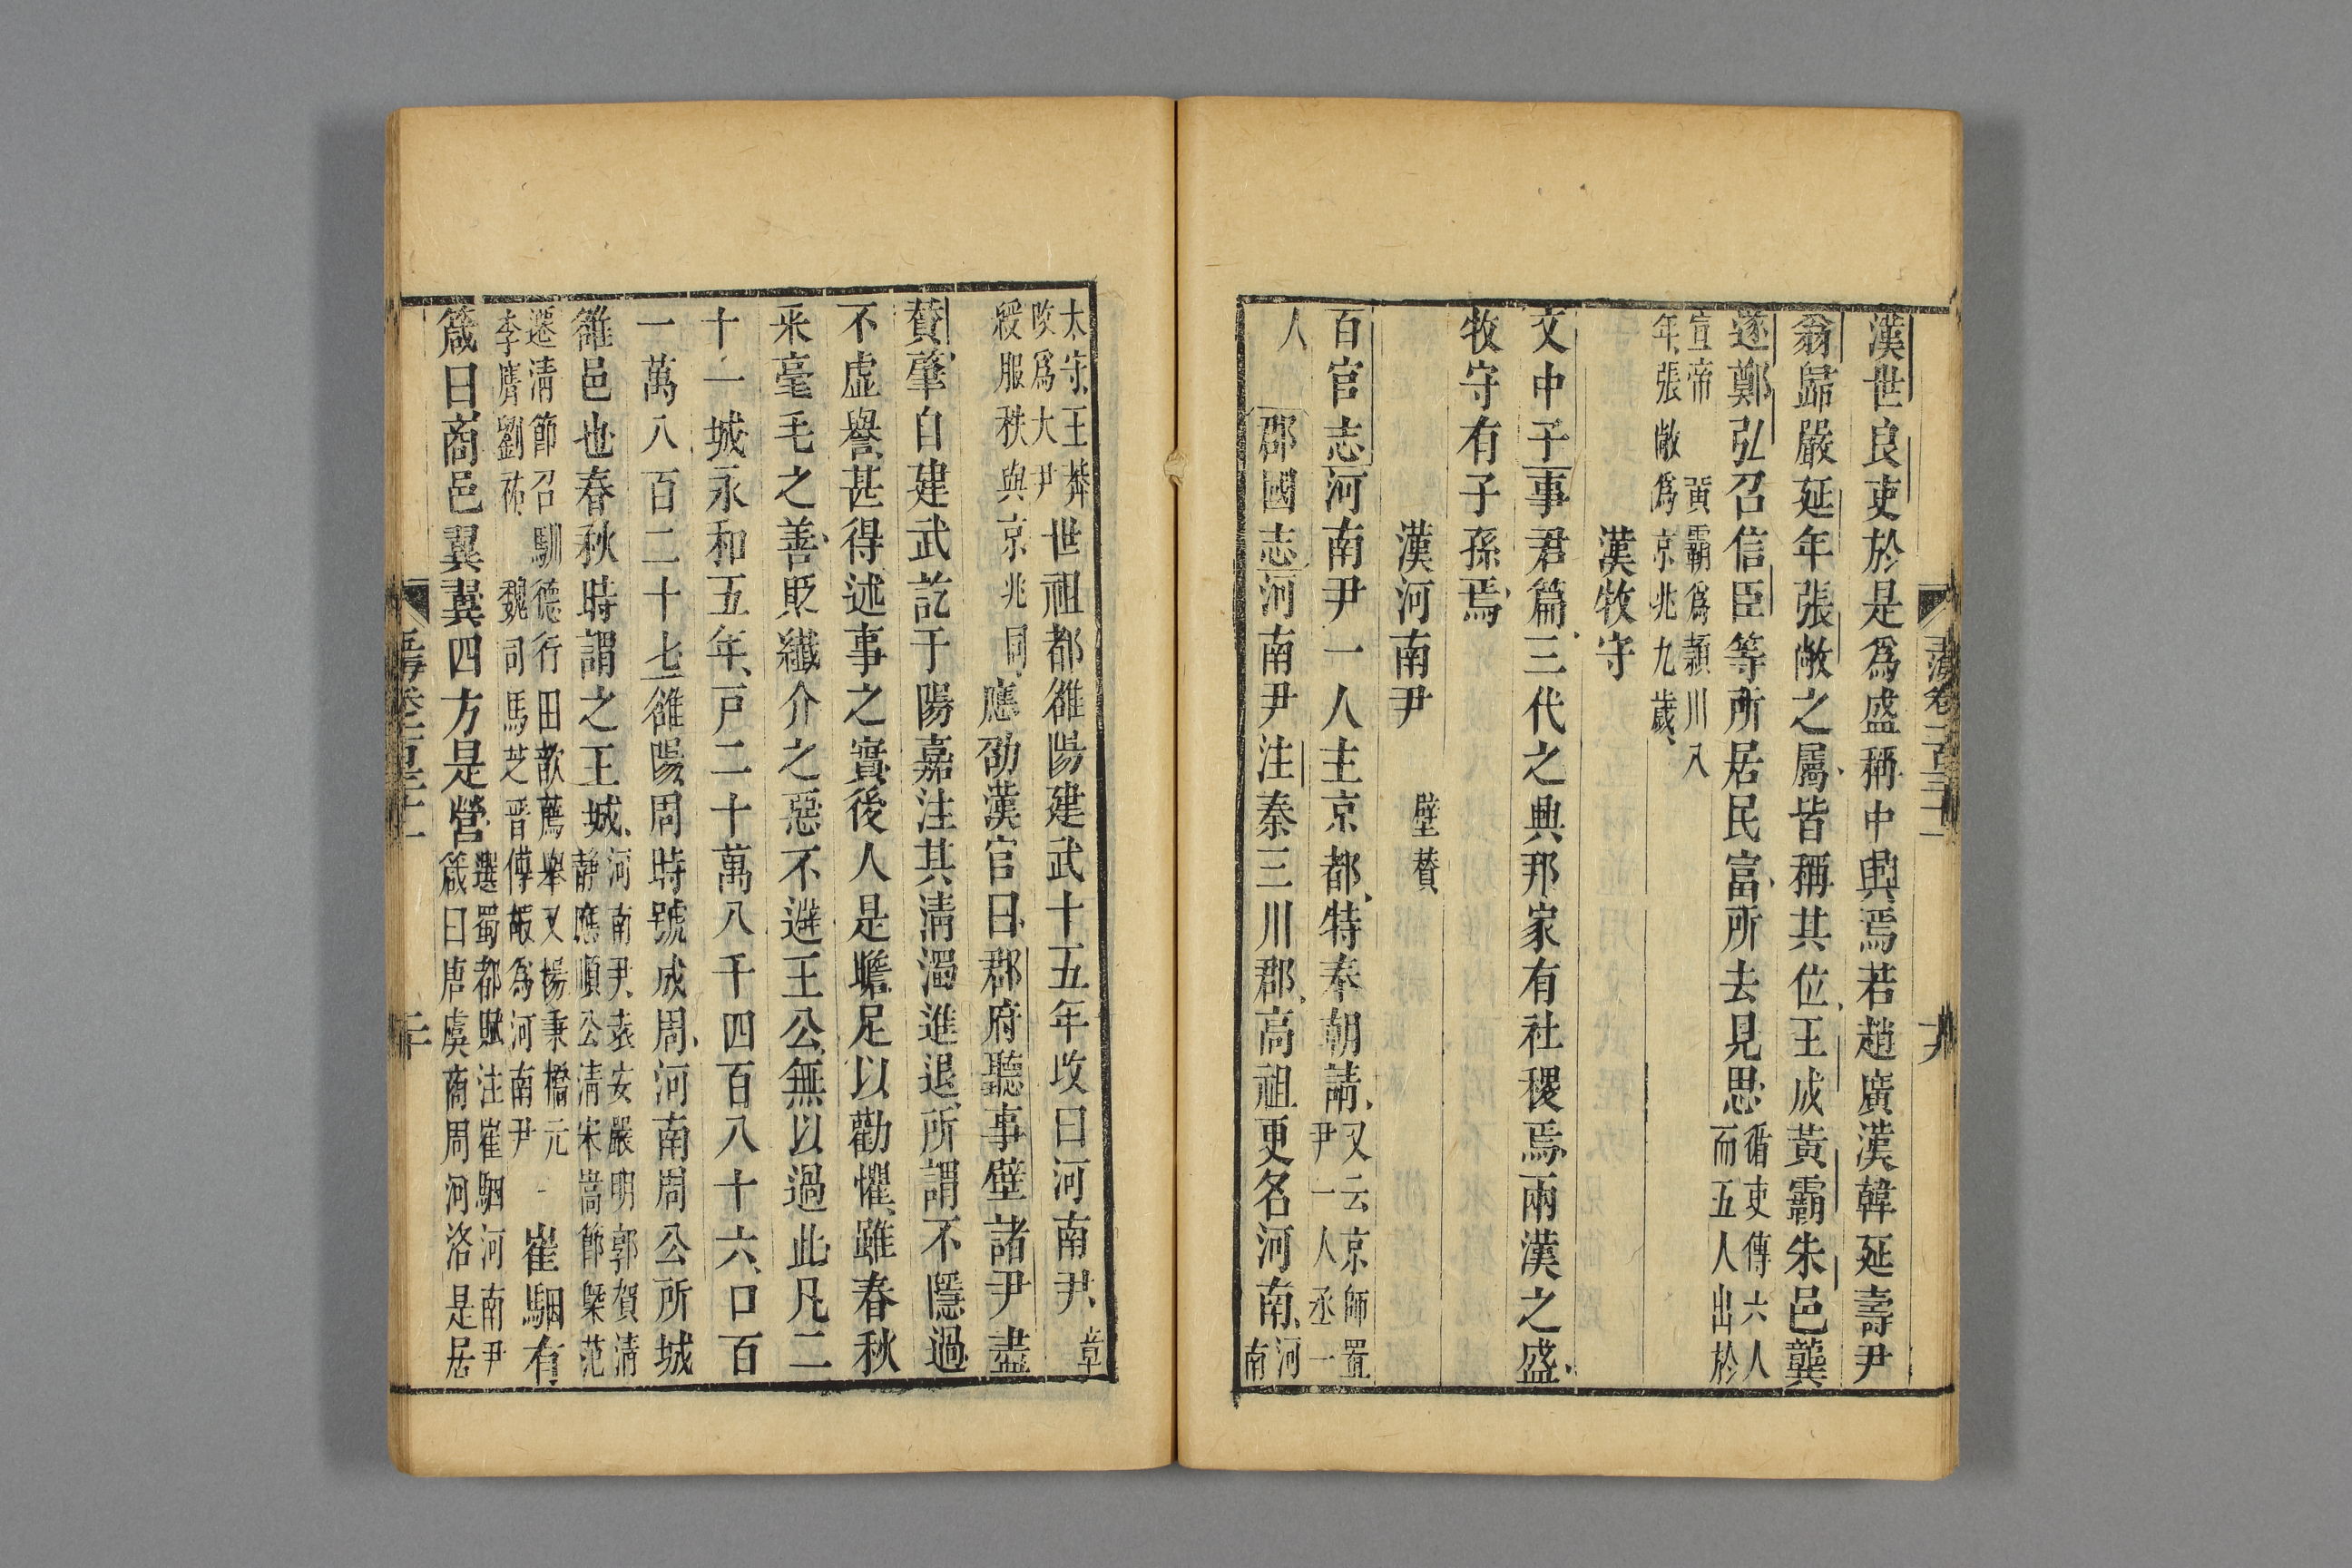 漢世良吏於是爲盛稱中興焉若趙廣漢韓延壽尹
翁歸嚴延年張敞之屬皆稱其位王成黃霸朱邑龔
遂鄭弘召信臣等所居民富所去見思循吏傳六人
而五人出於
宣帝 黃霸爲潁川八
年張敞爲京兆九歲
漢牧守
文中子事君篇三代之興邦家有社稷焉兩漢之盛
牧守有子孫焉
漢河南尹 壁贊
百官志河南尹一人主京都特奉朝請又云京師置
尹一人丞一
人 郡國志河南尹注秦三川郡高祖更名河南河
南
太守王莽
改爲大尹世祖都雒陽建武十五年改曰河南尹章
綬服秩與京兆同應劭漢官曰郡府聽事壁諸尹畫
贊肇自建武訖于陽嘉注其淸濁進退所謂不隱過
不虛譽甚得述事之實後人是瞻足以勸懼雖春秋
采毫毛之善貶纖介之惡不避王公無以過此凡二
十一城永和五年戶二十萬八千四百八十六口百
一萬八百二十七雒陽周時號成周河南周公所城
雒邑也春秋時謂之王城河南尹袁安嚴明郭賀淸
靜應順公淸宋嵩節槩范
遷淸節召馴德行田歆薦舉又楊秉橋元
李膺劉祐 魏司馬芝晉傅嘏爲河南尹 崔駰有
箴曰商邑翼翼四方是營選蜀都賦注崔駰河南尹
箴曰唐虞商周河洛是居